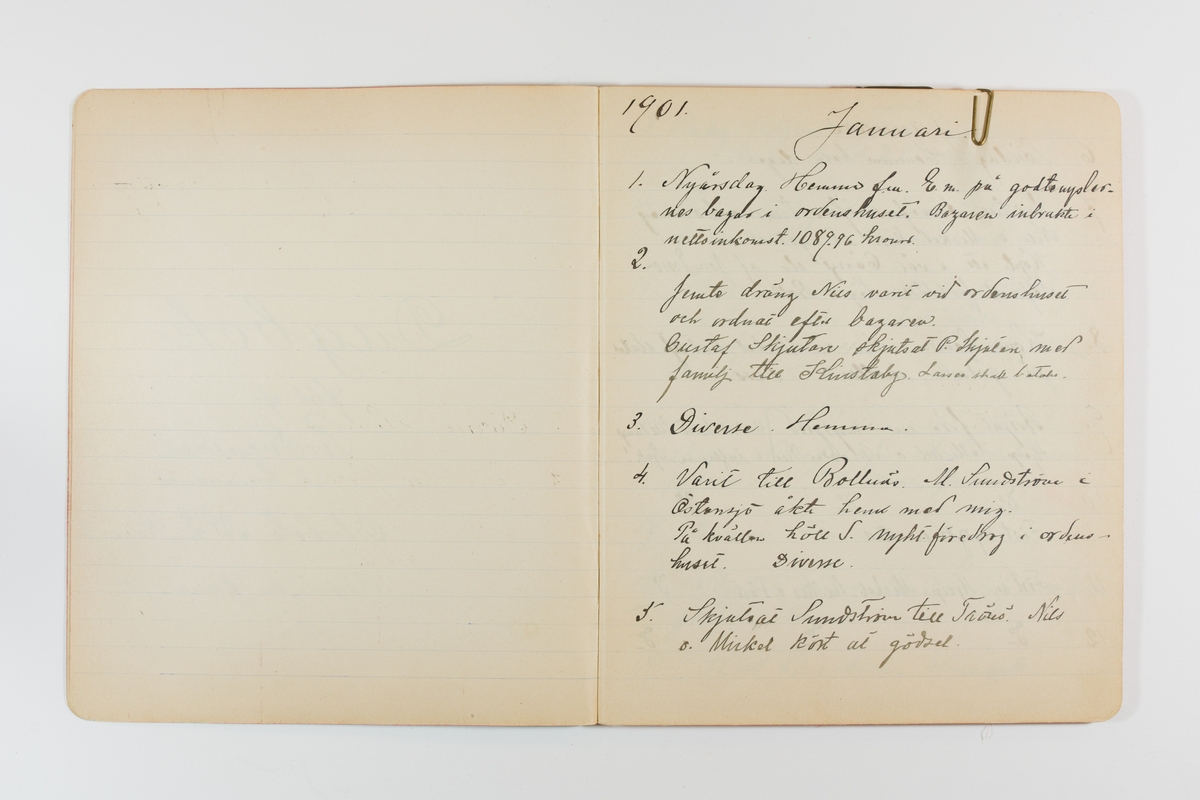 1901.
Januari
1. Nyårsdag. Hemma f.m. E.m. på godtemplar-
nes bazar i ordenshuset. Bazaren inbrakte i
nettoinkomst. 1089.96 kronor.
2.
Jemte dräng Nils varit vid ordenshuset
och ordnat efter bazaren.
Gustaf Skjutare skjutsat P. med
familj till Lasses skall betala.
3. Diverse. Hemma.
4. Varit till Bollnäs. M. Sundström i
Östansjö åkte hem med mig.
På kvällen höll S. nykt. föredrag i ordens-
huset. Diverse.
5. Skjutsat Sundström till Trönö. Nils
o. Mickel kört ut gödsel.